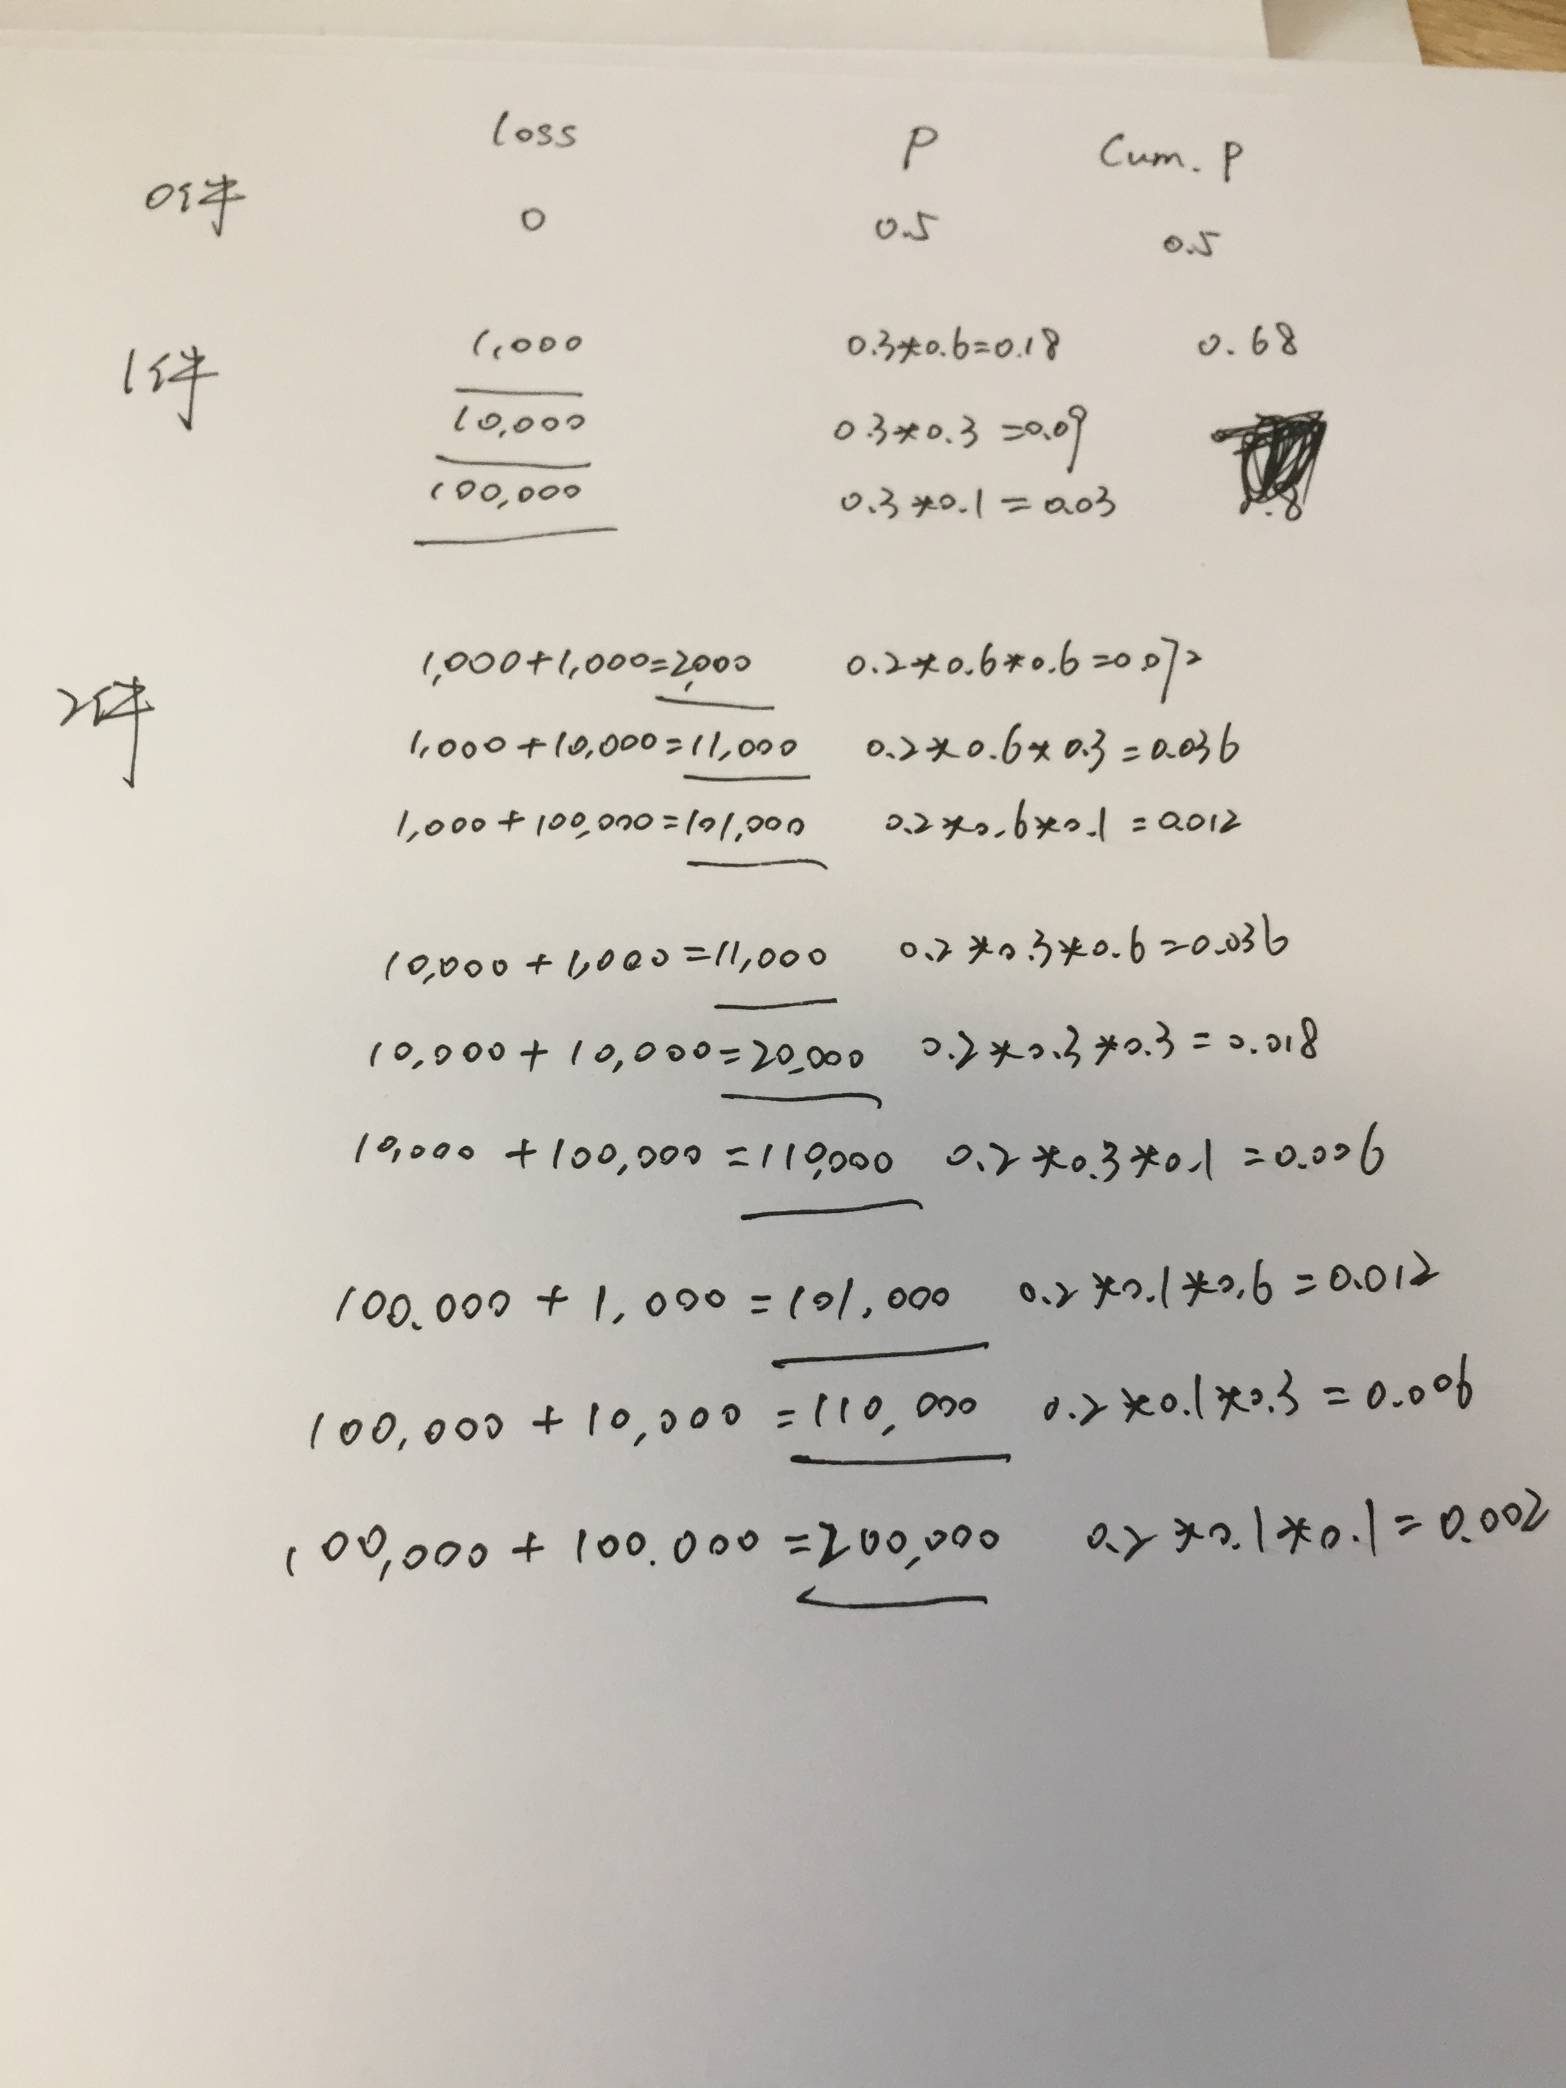 loss P Cum. P
0件 0 0.5 0.5
1件 1,000 0.3*0.6=0.18 0.68
10,000 0.3*0.3=0.09
100,000 0.3*0.1=0.03
2件 1,000+1,000=2,000 0.2*0.6*0.6=0.072
1,000+10,000=11,000 0.2*0.6*0.3=0.036
1,000+100,000=101,000 0.2*0.6*0.1=0.012
10,000+1,000=11,000 0.2*0.3*0.6=0.036
10,000+10,000=20,000 0.2*0.3*0.3=0.018
10,000+100,000=110,000 0.2*0.3*0.1=0.006
100.000+1,000=101,000 0.2*0.1*0.6=0.012
100,000+10,000=110,000 0.2*0.1*0.3=0.006
100,000+100.000=200,000 0.2*0.1*0.1=0.002